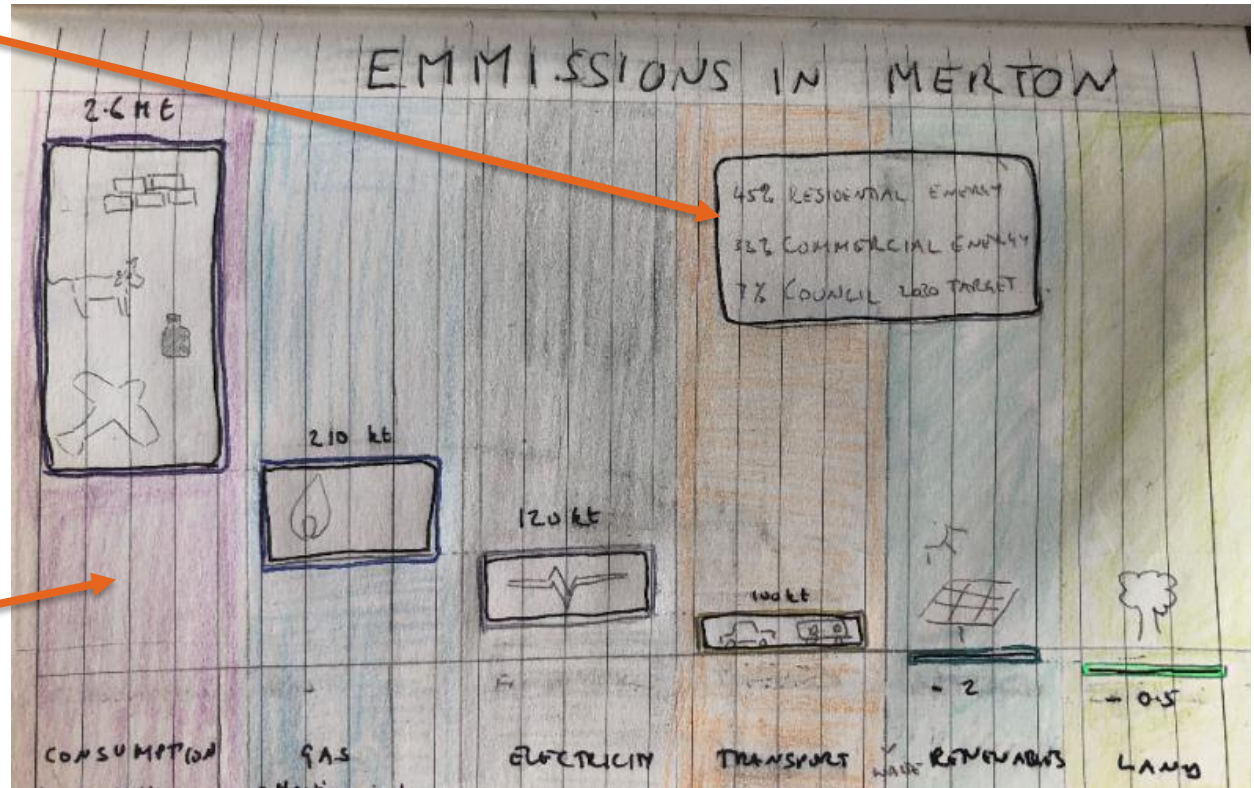 EMMISSIONS IN MERTON
2.6 Mt
45% RESIDENTIAL ENERGY
COMMERCIAL ENERGY
7% COUNCIL 2030 TARGET
210 kt
120 kt
100kt
- 2
- 0.5
CONSUMPTION
GAS
ELECTRICITY
TRANSPORT
RENEWABLES
LAND